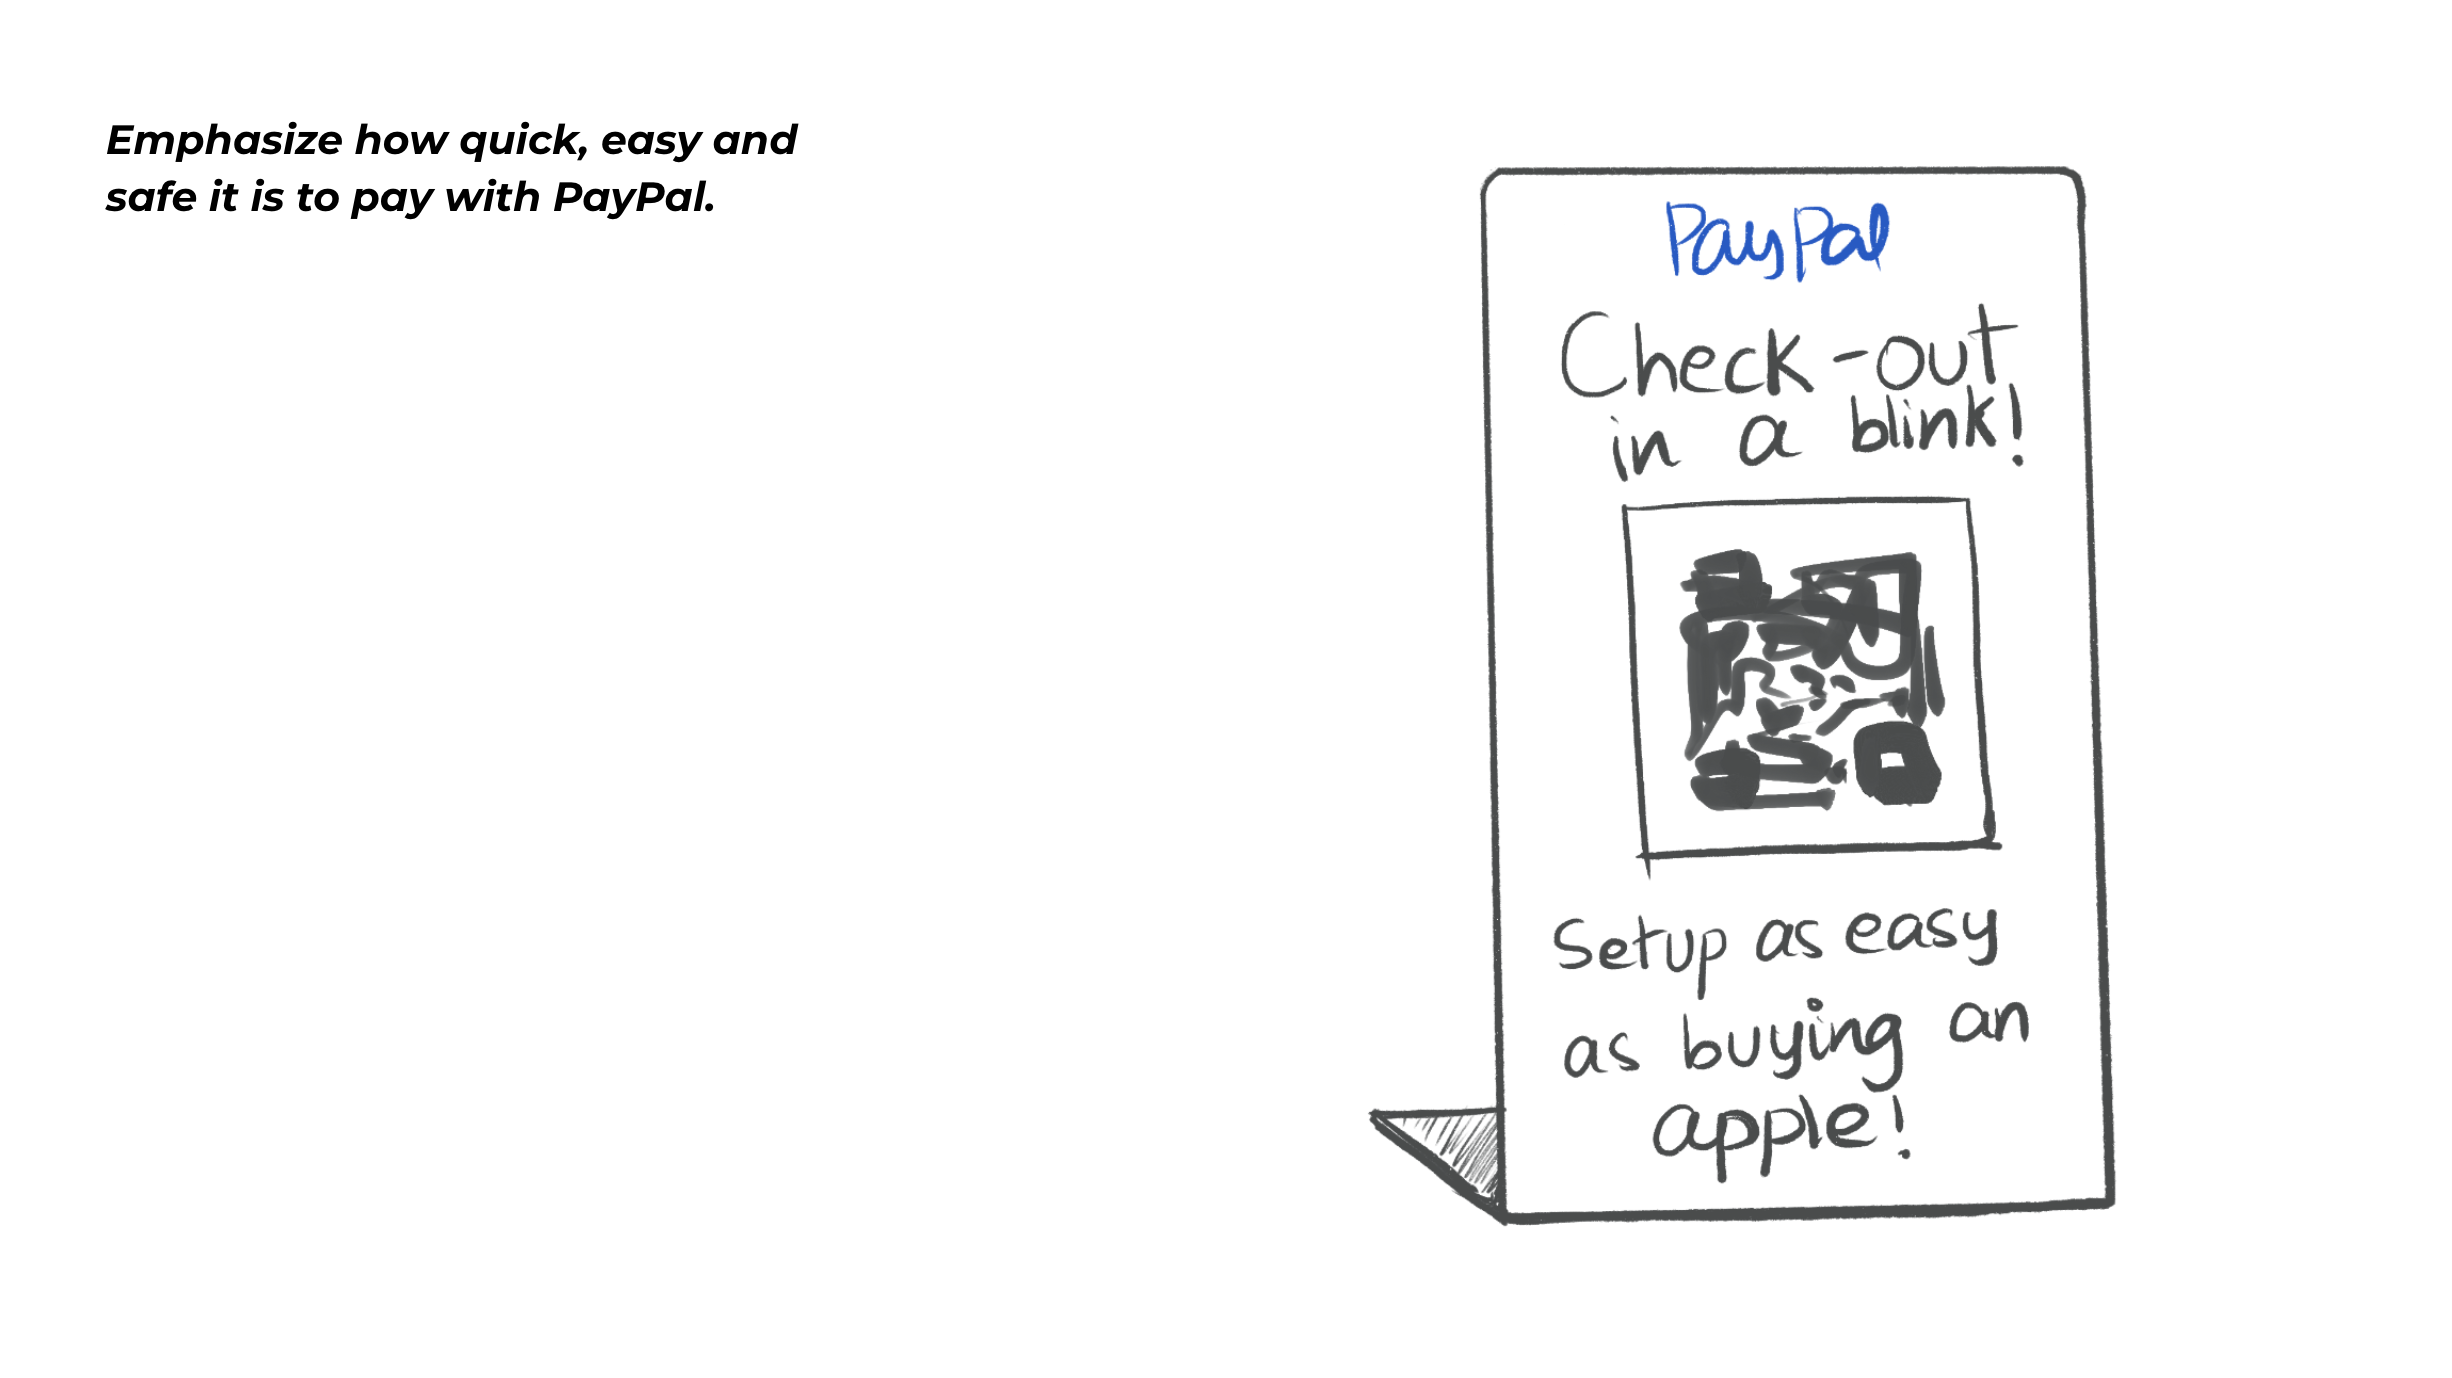 Emphasize how quick, easy and
safe it is to pay with PayPal.
PayPal
Check-out
in a blink!
Setup as easy
as buying an
apple!